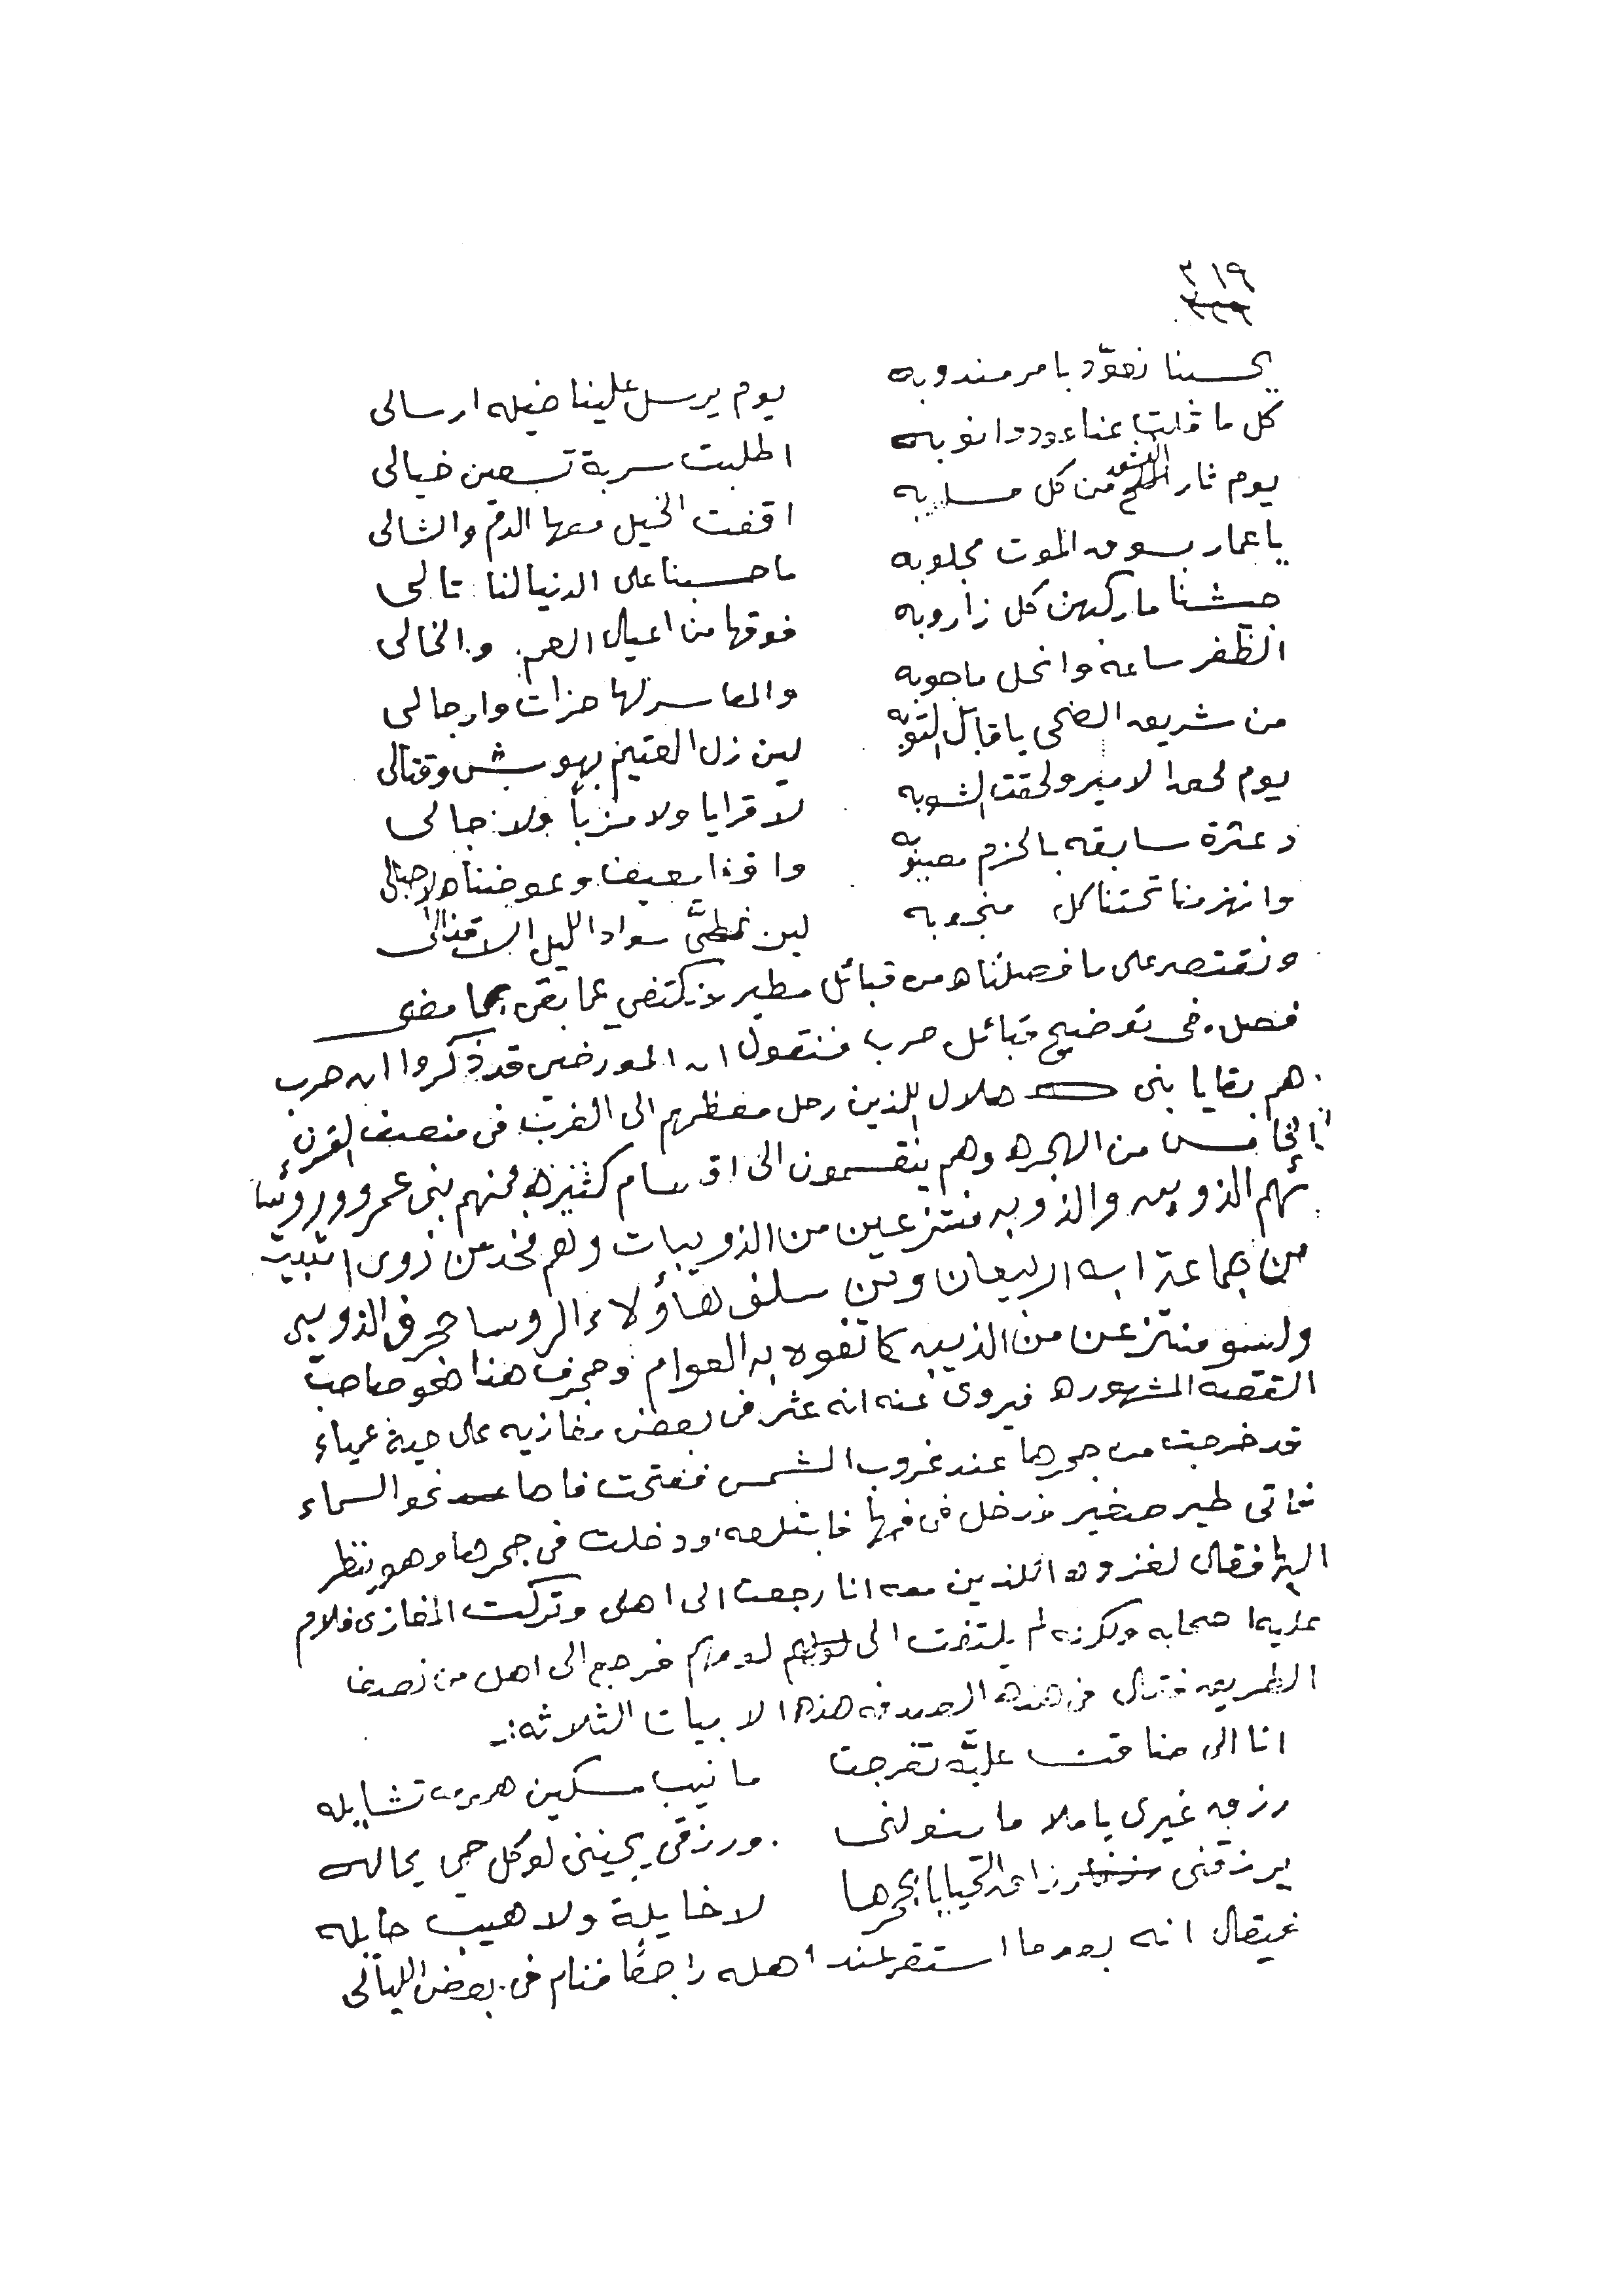 ٣١٩
٣٢٩
يحسبنا نعوّد بامر مندوبه يوم يرسل علينا خيله ارسالى
كل ما قلت عنا عودوا نوبه اطلبت سربة تسعين خيالى
يوم ثار من كل مسلابه اقفت الخيل معها الدم والشالى
يا عمار بسوق الموت مجلوبه ما حسبنا على الدنيا لنا تالى
جيشنا ماركبهن كل زاروبه فوقها من اعيال العم والخالى
الظفر ساعه وانحل ماجوبه والمعاسر لها حزات وارجالى
من شريعه الضحى يا قابل التوبه لين زل العتيم بهوش وقتالى
يوم لحقوا الامير ولحقت الشوبه لا قرايا ولا مزبا ولا جالى
دعثرة سابقه بالحزم مصيوبه
وانهزمنا تحتنا كل منجوبه لين غطى سواد الليل الاقذالى
ونقتصر على ما فصلناه من قبائل مطير ونكتفي عما بقى بما مضى
فصل. فى توضيح قبائل حرب فنقول ان المورخين قد ذكروا ان حرب
هم بقايا بنى هلال اللذين رحل معظمهم الى الغرب فى منصف القرن
الخامس من الهجره وهم ينقسمون الى اقسام كثيره فمنهم بنى عمرو وروسا
ئهم الذويبى والذويبه منتزعين من الذويبات وهم فخذ من ذوى اثبيت
من جماعة ابن اربيعان ومن سلف هاؤلاء الروسا حجرف الذويبى
وليسو منتزعن من الذيبه كما تفوه به العوام وحجرف هذا هو صاحب
القصه المشهوره فيروى عنه انه عثر فى بعض مغازيه على حية عمياء
قد خرجت من جحرها عند غروب الشمس ففتحت فاها نحو السماء
فاتى طير صغير ودخل فى فمها فابتلعه ودخلت فى جحرها وهو ينظر
اليها فقال لغزوه اللذين معه انا رجعت الى اهلى وتركت المغازى فلام
عليه اصحابه ولكنه لم يلتفت الى لومهم فرجع الى اهله من نصف
الطريق فقال فى هذه الصدفه هذه الابيات الثلاثه:ـ
انا الى ضاقت عليّه تفرجت مانيب مسكين همومه تشايله
رزق غيرى يا ملا ما ينولنى ورزقى يجينى لو كل حى يحايله
يرزقنى رزاق الحيايا بجحرها لا خايلة ولا هيب حايله
فيقال انه بعد ما استقر عند اهله راجعًا فنام فى بعض الليالى